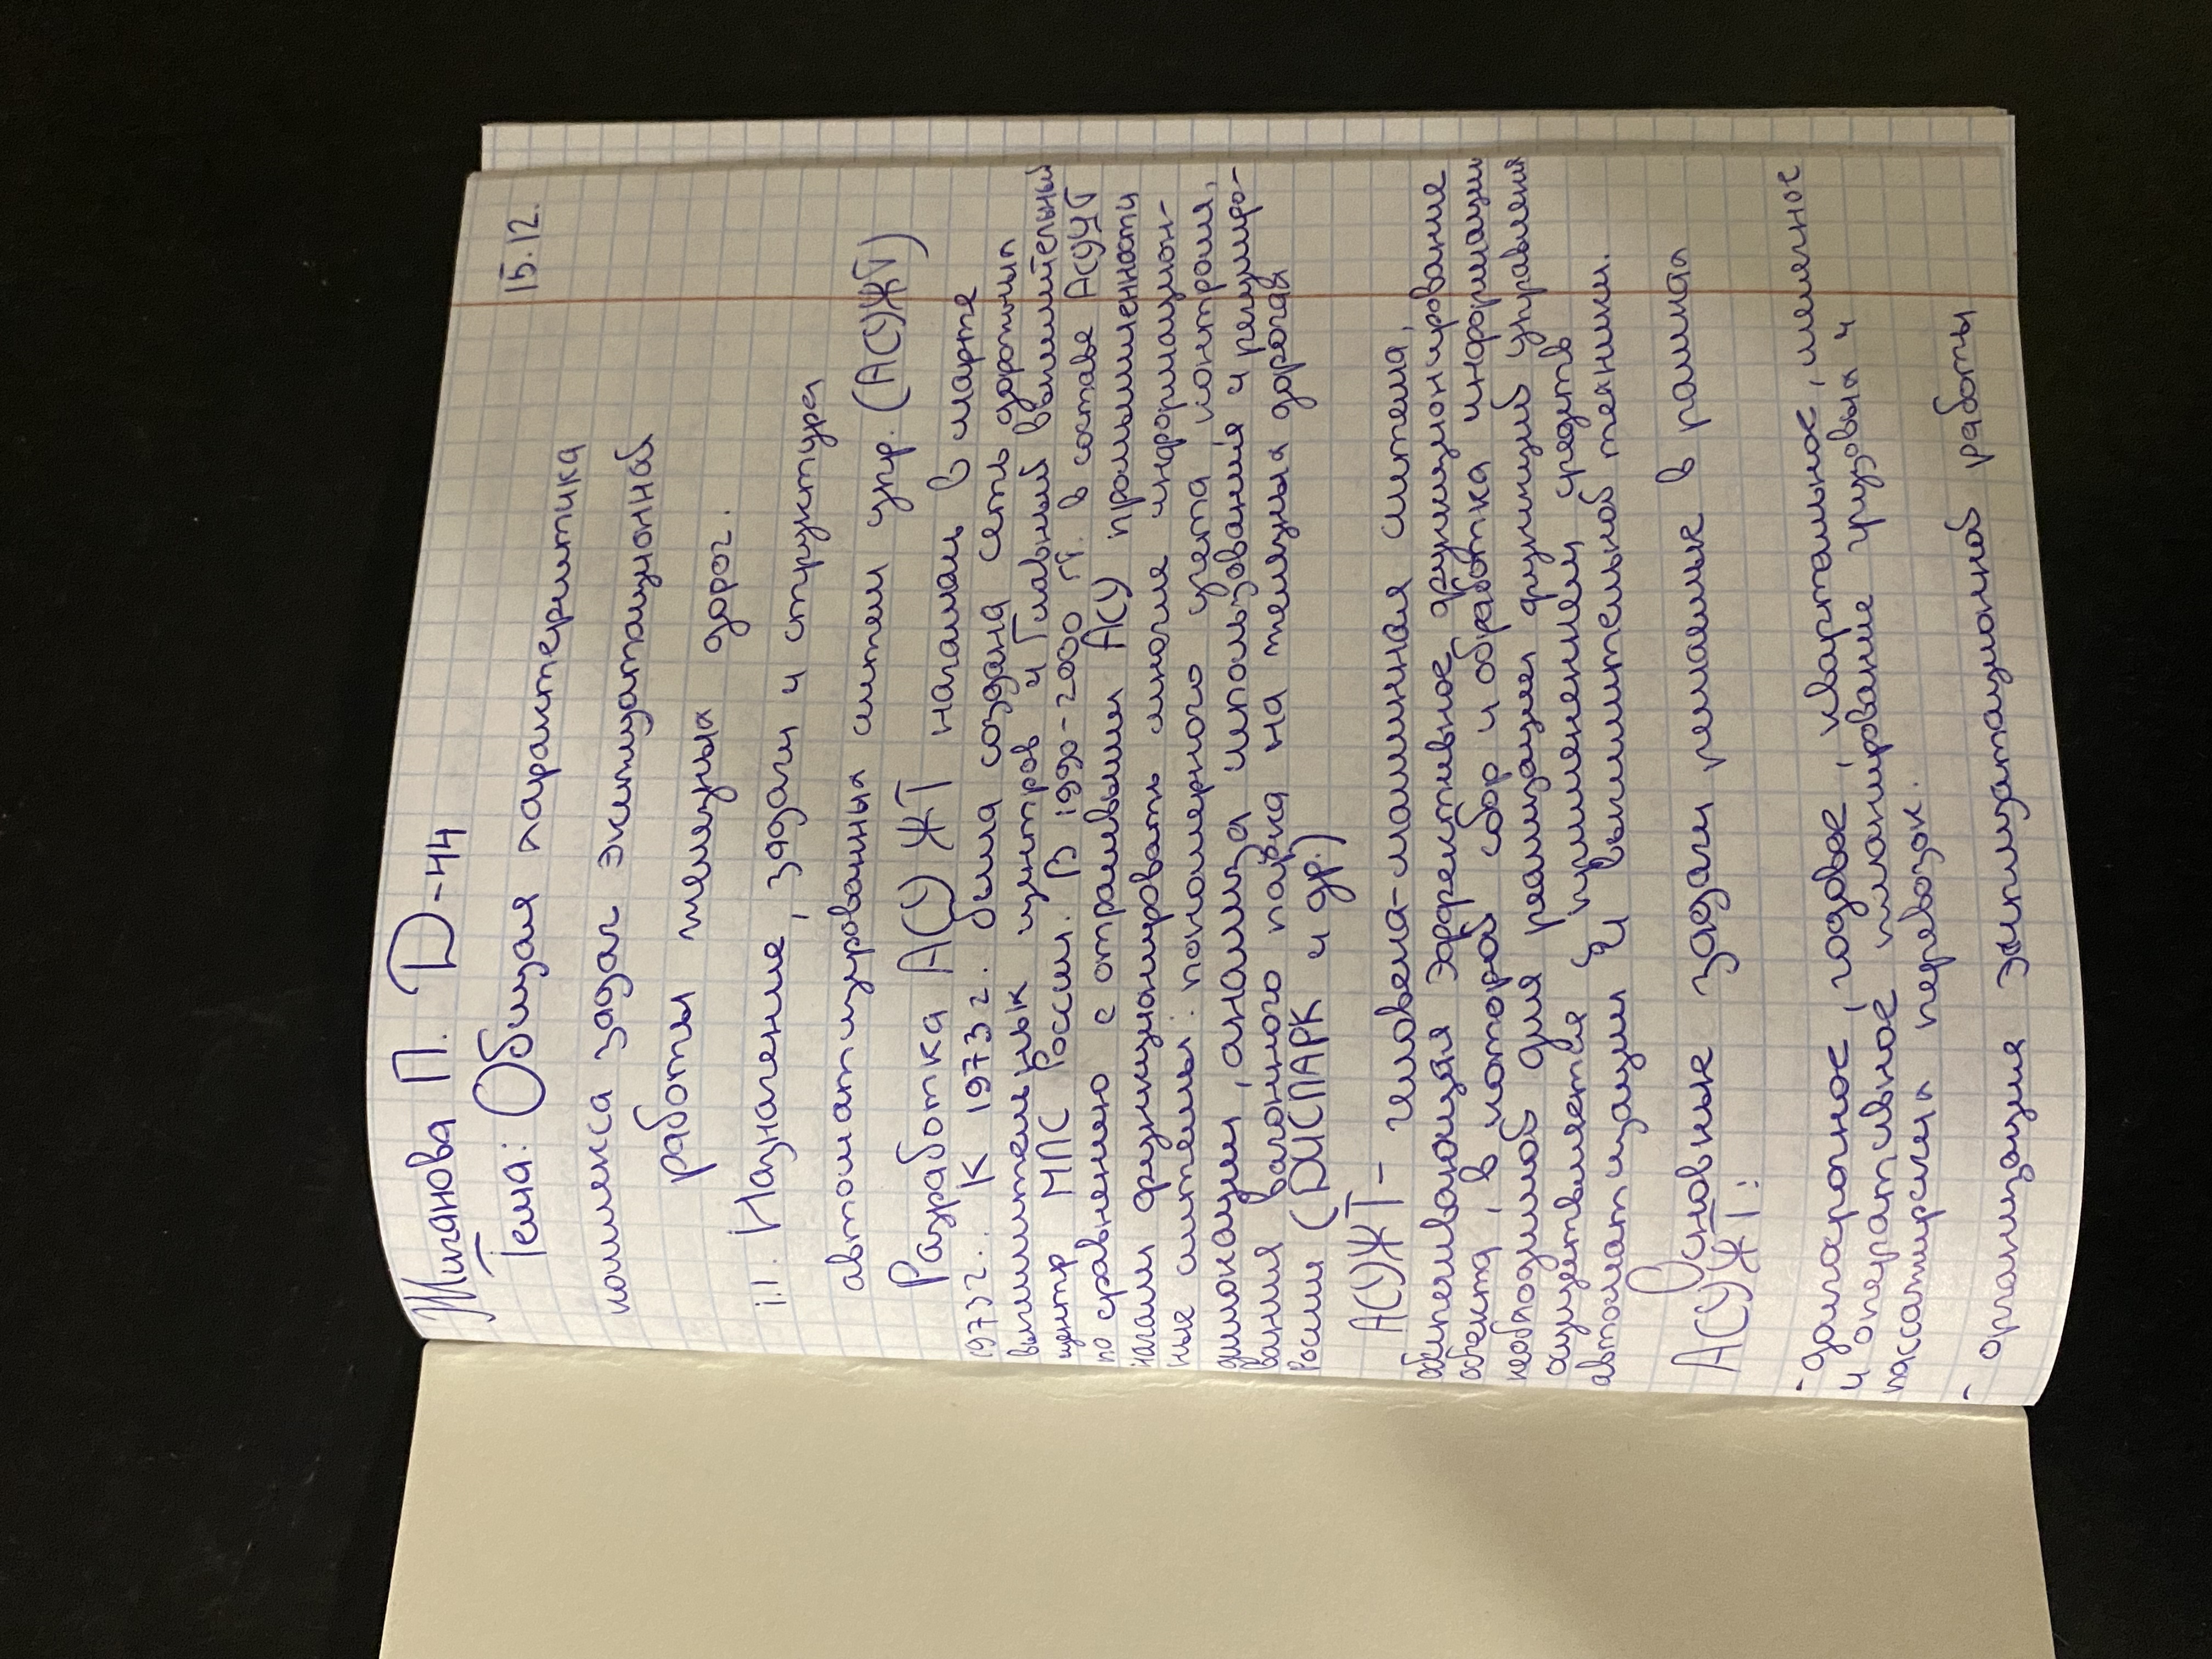 Жиганова П. Д-44
15.12.
Тема: Общая характеристика
комплекса задач эксплуатационной
работы железных дорог.
1.1. Назначение, задачи и структура
автоматизированных систем упр. (АСУЖТ)
Разработка АСУЖТ начались в марте
1973 г. К 1973 г. была создана сеть дорожных
вычислительных центров и Главный вычислительный
центр МПС России. В 1990-2000 гг. в составе АСУЖТ
по сравнению с отраслевыми АСУ промышленности
начали функционировать многие информацион-
ные системы: пономерного учета контроля,
дислокации, анализа использования и регулиро-
вания вагонного парка на железных дорогах
России (ДИСПАРК и др.)
АСУЖТ - человека-машинная система,
обеспечивающая эффективное функционирование
объекта, в которой сбор и обработка информации
необходимой для реализации функций управления
осуществляется с применением средств
автоматизации и вычислительной техники.
Основные задачи решаемые в рамках
АСУЖТ:
- долгосрочное, годовое, квартальное, месячное
и оперативное планирование грузовых и
пассажирских перевозок.
- организация эксплуатационной работы